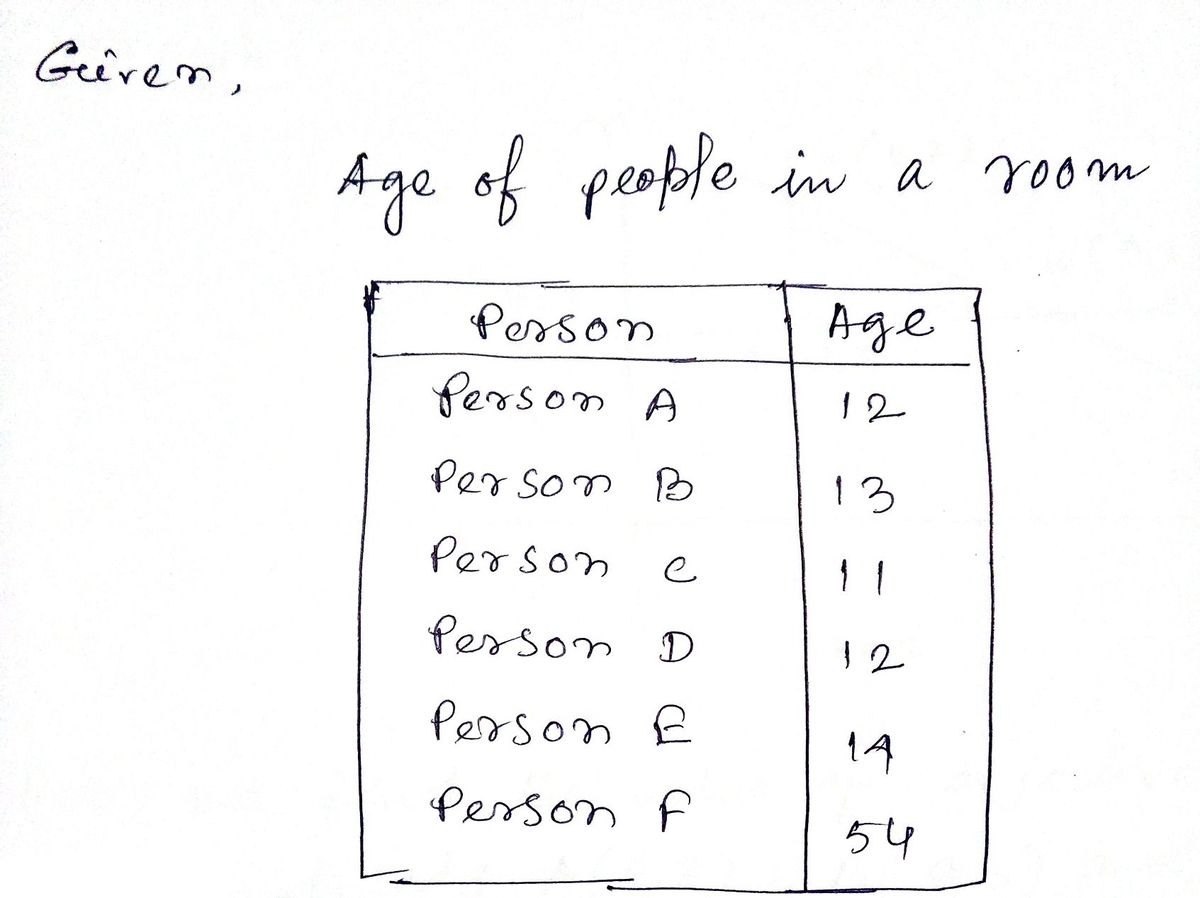 Given,
Age of people in a room
Person Age
Person A 12
Person B 13
Person C 11
Person D 12
Person E 14
Person F 54